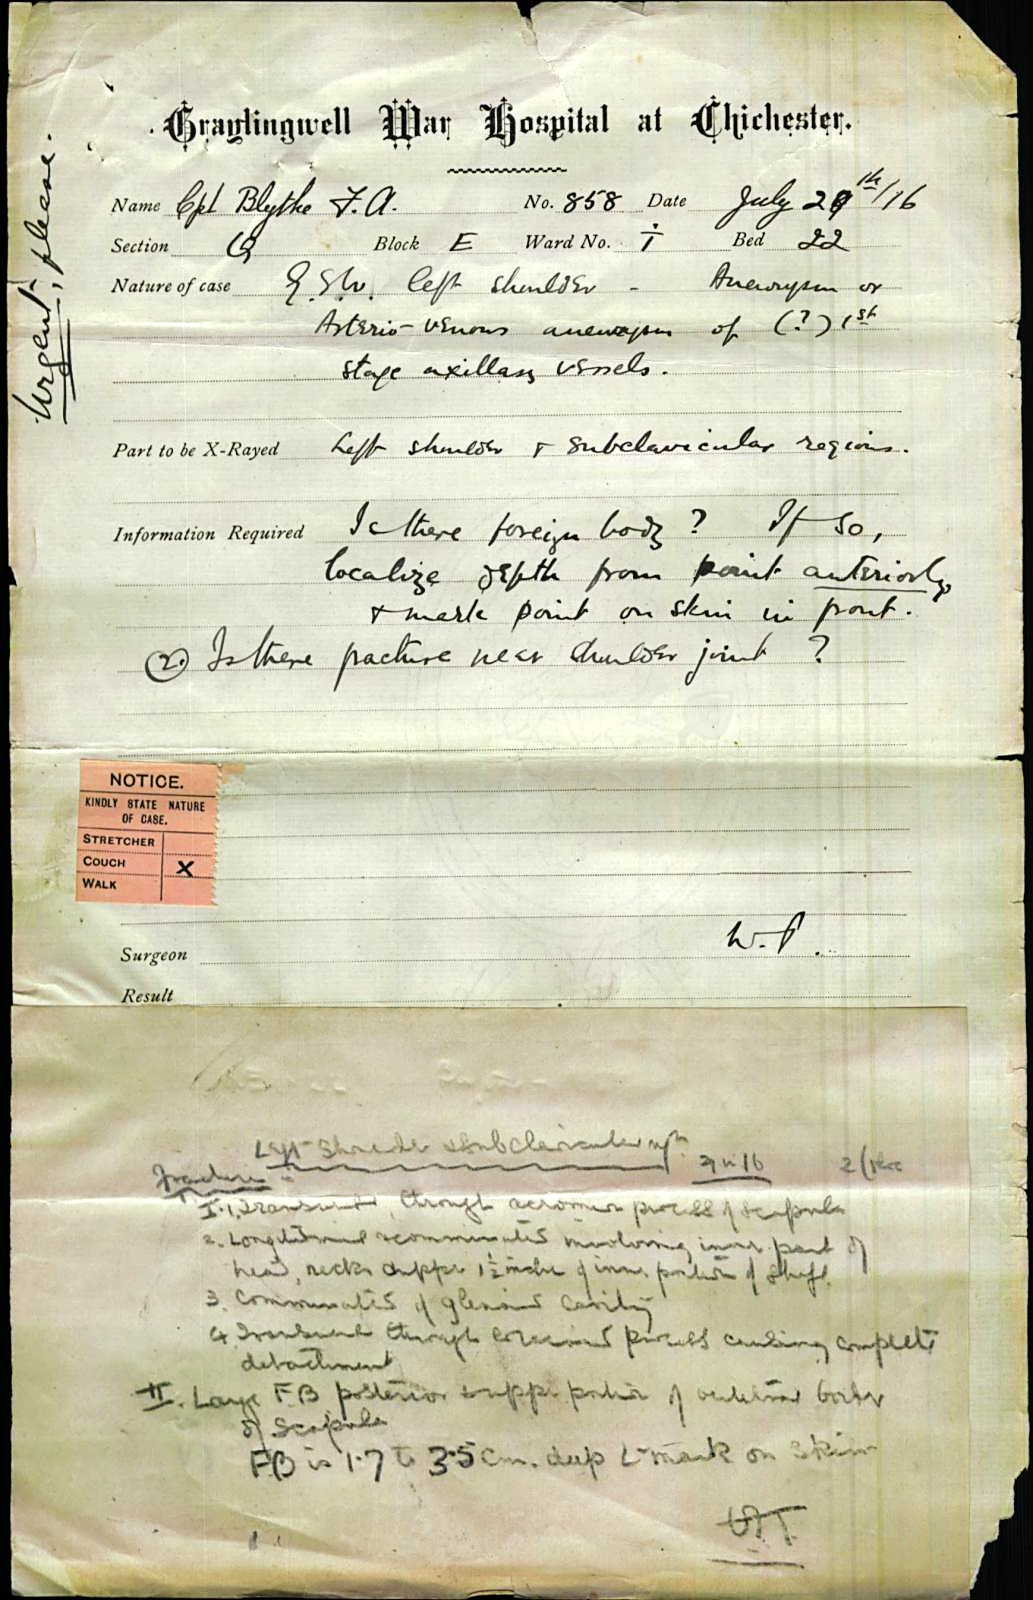 Graylingwell War Hospital at Chichester.
Urgent, please.
Name Cpl Blythe F.A. No. 858 Date July 29th/16
Section G Block E Ward No. I Bed 22
Nature of case G.S.W. left shoulder - Aneurysm or
Arterio-venous aneurysm of (?) 1st
stage axillary vessels.
Part to be X-Rayed Left shoulder & subclavicular regions.
Information Required Is there foreign body? If so,
localize depth from point anteriorly
& mark point on skin in front.
(2.) Is there fracture near shoulder joint?
NOTICE.
KINDLY STATE NATURE
OF CASE.
STRETCHER
COUCH X
WALK
Surgeon W.P.
Result
Left Shoulder & Subclavicular
Fracture
I. 1. Transverse, through acromion process of scapula
2. Longitudinal & comminuted involving inner part of
head, neck & upper 1½ inches of inner portion of shaft.
3. Comminuted of glenoid cavity
4. Transverse through coracoid process causing complete
detachment
II. Large F.B posterior to upper portion of vertebral border
of Scapula
FB is 1.7 to 3.5 cm. deep L- mark on skin